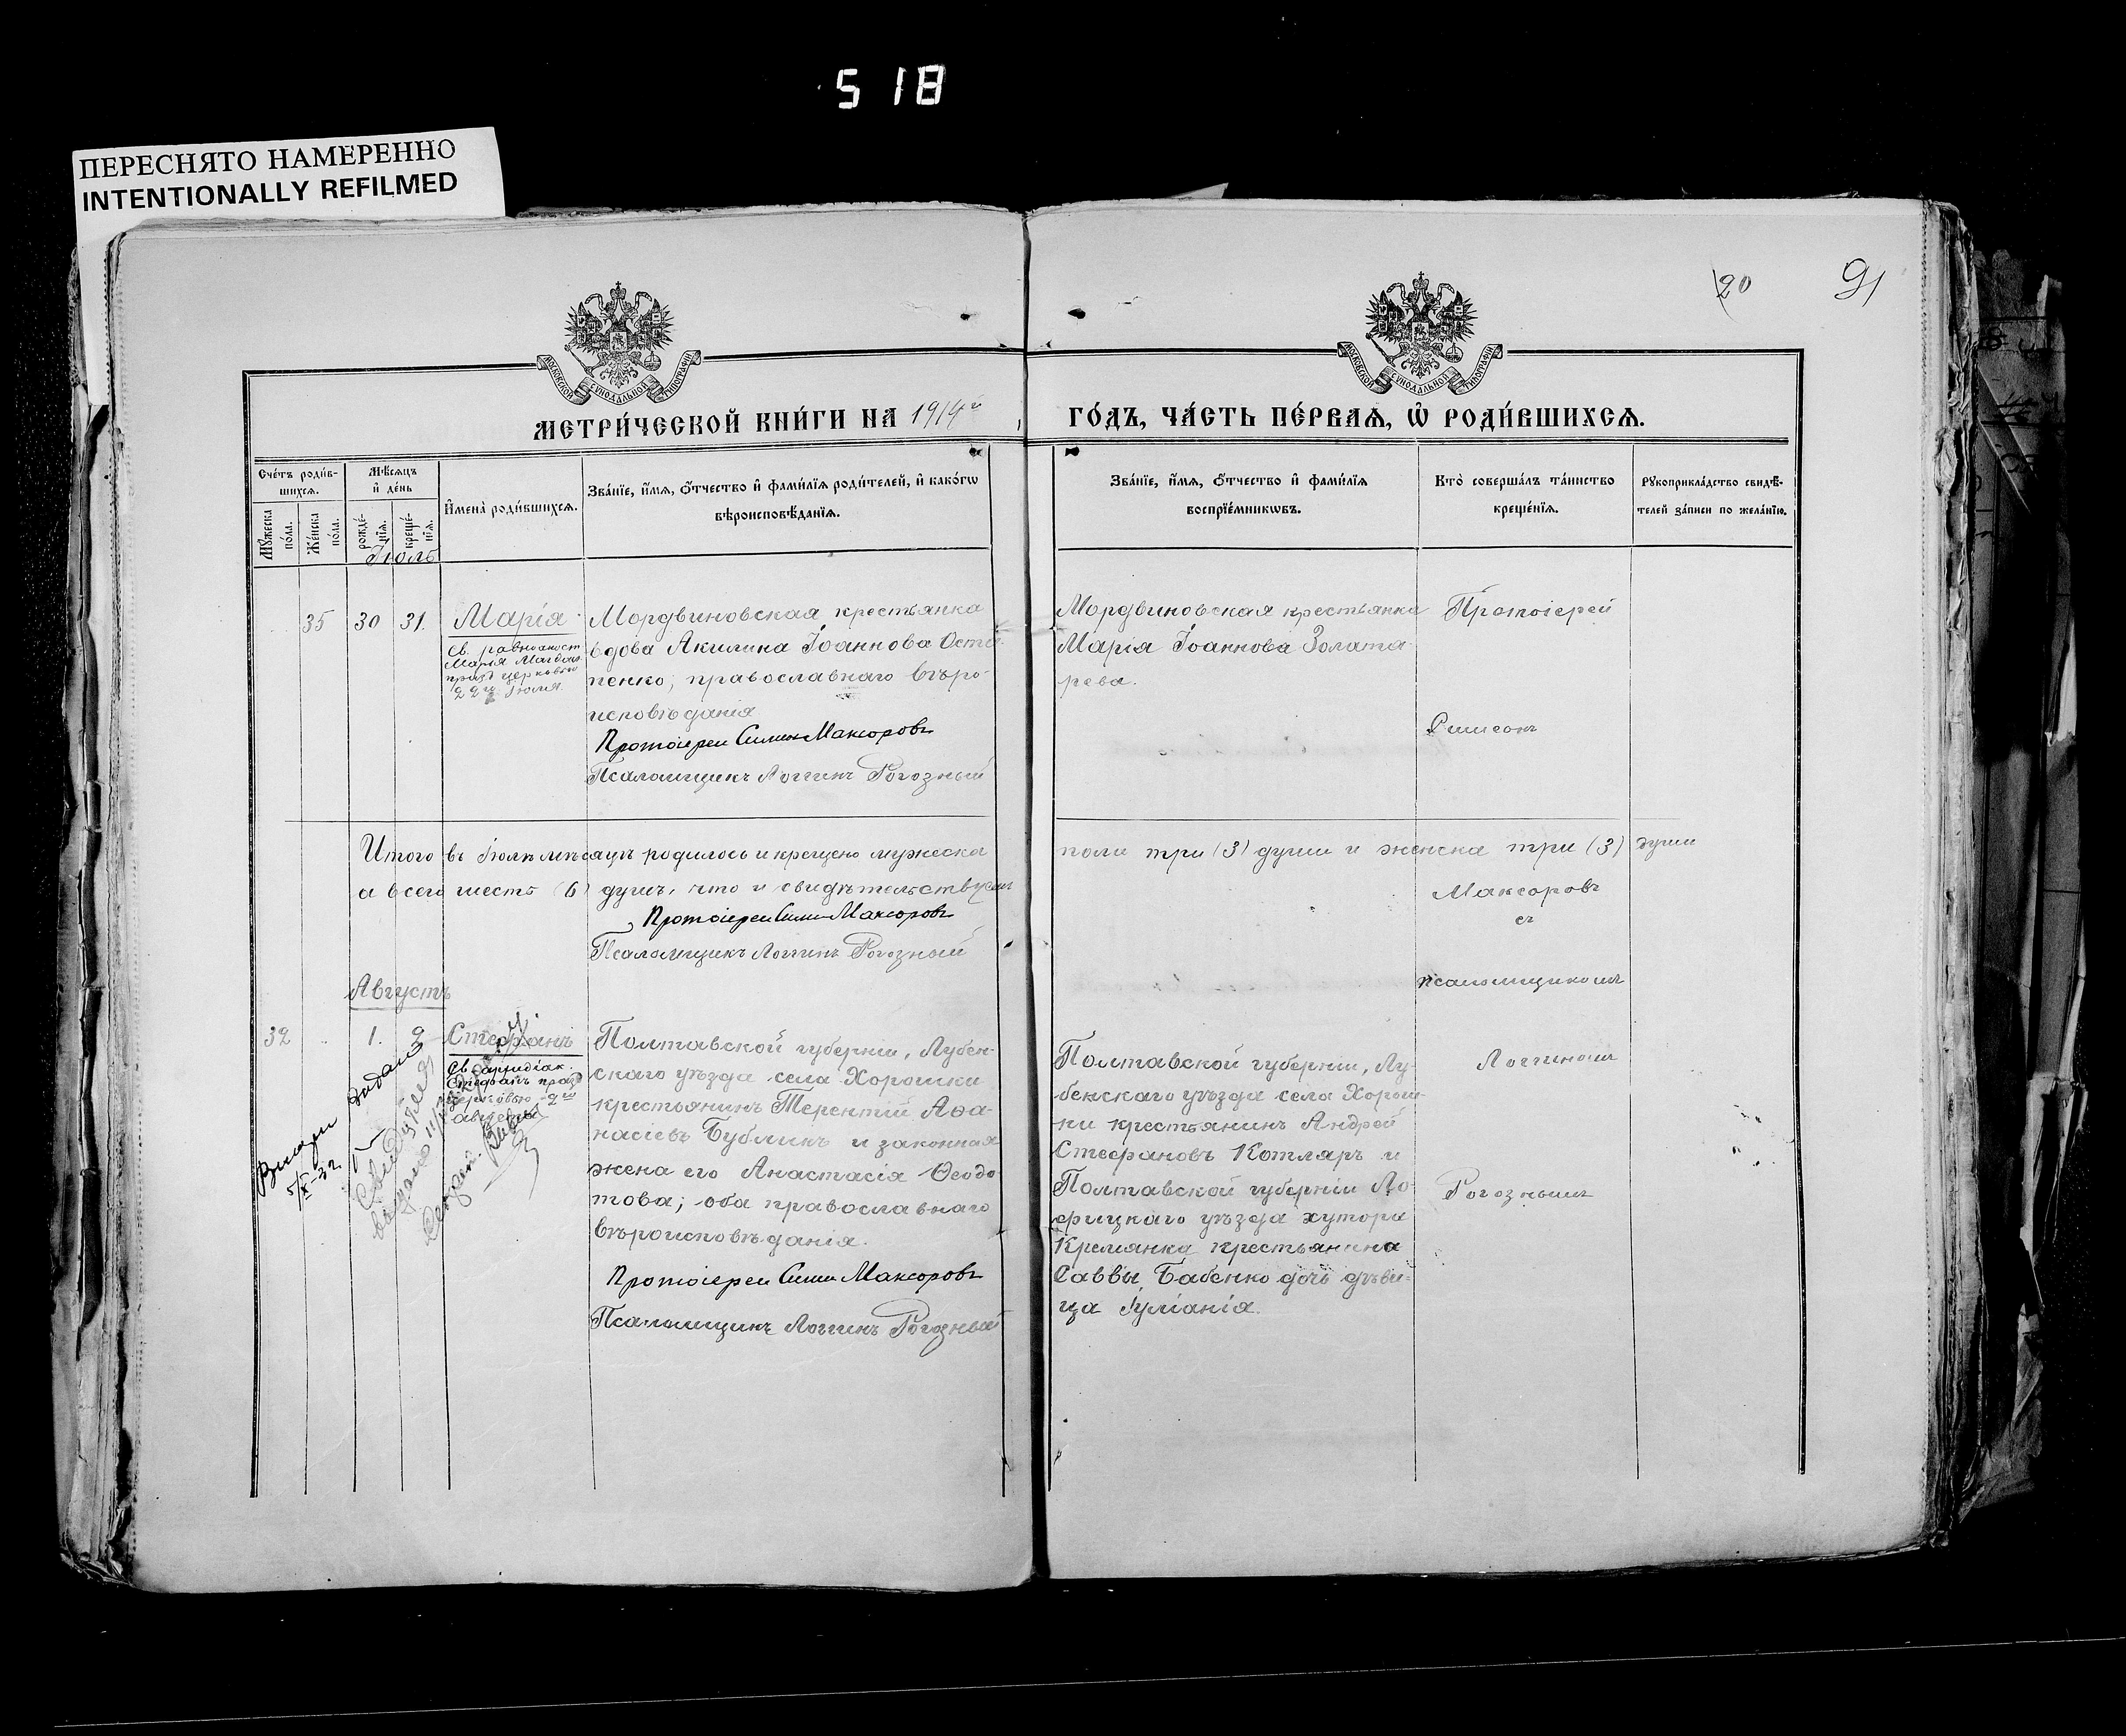 518
ПЕРЕСНЯТО НАМЕРЕННО
INTENTIONALLY REFILMED
20
91
МОСКОВСКОЙ СУНОДАЛЬНОЙ ТИПОГРАФІИ
МОСКОВСКОЙ СУНОДАЛЬНОЙ ТИПОГРАФІИ
МЕТРИ́ЧЕСКОЙ КНИ́ГИ НА 1914й
ГО́ДЪ, ЧА́СТЬ ПЕ́РВАѦ, Ѡ҆ РОДИ́ВШИХСѦ.
Сче́тъ роди́в-
шихсѧ.
Мѣ́сѧцъ
и҆ де́нь
Мꙋ́жеска по́ла.
Же́нска по́ла.
рожде́-нїѧ.
креще́-нїѧ.
И҆мена̀ роди́вшихсѧ.
Зва́нїе, и҆́мѧ, ѻ҆́тчество и҆ фами́лїѧ роди́телей, и҆ како́гѡ
вѣроисповѣ́данїѧ.
Зва́нїе, и҆́мѧ, ѻ҆́тчество и҆ фами́лїѧ
воспрїе́мникѡвъ.
Кто̀ соверша́лъ та́инство
креще́нїѧ.
Рꙋкоприкла́дство свидѣ́-
телей за́писи по жела́нїю.
Іюль
35 30 31. Марія
Св. равноапост
Марія Магдал
празд церковью
22го Іюля.
Мордвиновская крестьянка
вдова Акилина Іоаннова Оста-
пенко; православнаго вѣро-
исповѣданія
Протоіерей Симеон Максоровъ
Псаломщикъ Логгинъ Рогозный
Мордвиновская крестьянка
Марія Іоаннова Золата-
рева.
Протоіерей
Симеонъ
Итого въ Іюлѣ мѣсяцѣ родилось и крещено мужеска
пола три (3) души и женска три (3) души
а всего шесть (6) душъ, что и свидѣтельствуемъ
Протоіерей Симеон Максоровъ
Псаломщикъ Логгинъ Рогозный
Максоровъ
съ
псаломщикомъ
Августъ
32 1. 2 Стефанъ
Св. архидіак.
Стефанъ празд
церковью 2го
августа
Полтавской губерніи, Лубен-
скаго уѣзда села Хорошки
крестьянинъ Терентій Аѳа-
насіевъ Бубликъ и законная
жена его Анастасія Ѳеодо-
това; оба православнаго
вѣроисповѣданія.
Протоіерей Симеон Максоровъ
Псаломщикъ Логгинъ Рогозный
Полтавской губерніи, Лу-
бенскаго уѣзда села Хорош-
ки крестьянинъ Андрей
Стефановъ Котляръ и
Полтавской губерніи Ло-
хвицкаго уѣзда хутора
Кремянка крестьянина
Саввы Бабенко дочь дѣви-
ца Іуліанія.
Логгиномъ
Рогознымъ
5/X-32